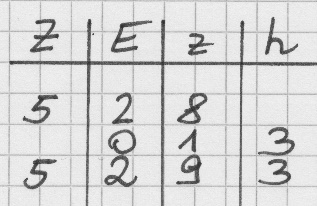 Z E z h
5 2 8
0 1 3
5 2 9 3